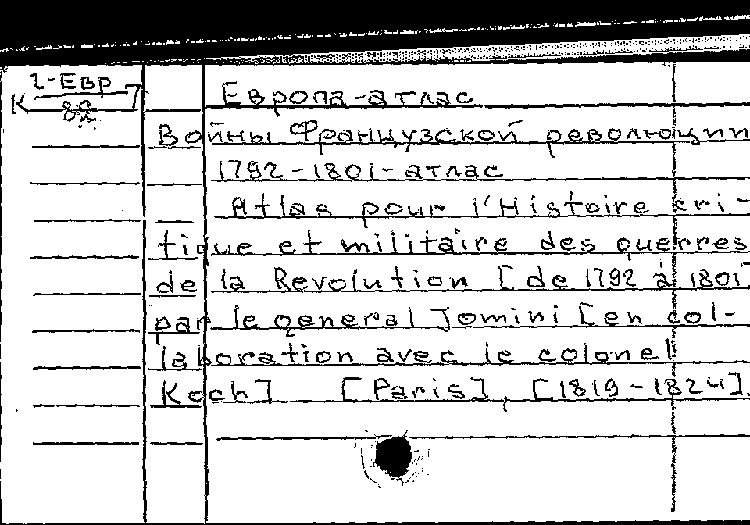 2-Евр
К 7
82
Европа-атлас
Войны Французской революции
1792-1801-атлас
Atlas pour l'Histoire cri-
tique et militaire des guerres
de la Revolution [de 1792 à 1801]
par le general Jomini [en col-
laboration avec le colonel
Koch] [Paris], [1819-1824].